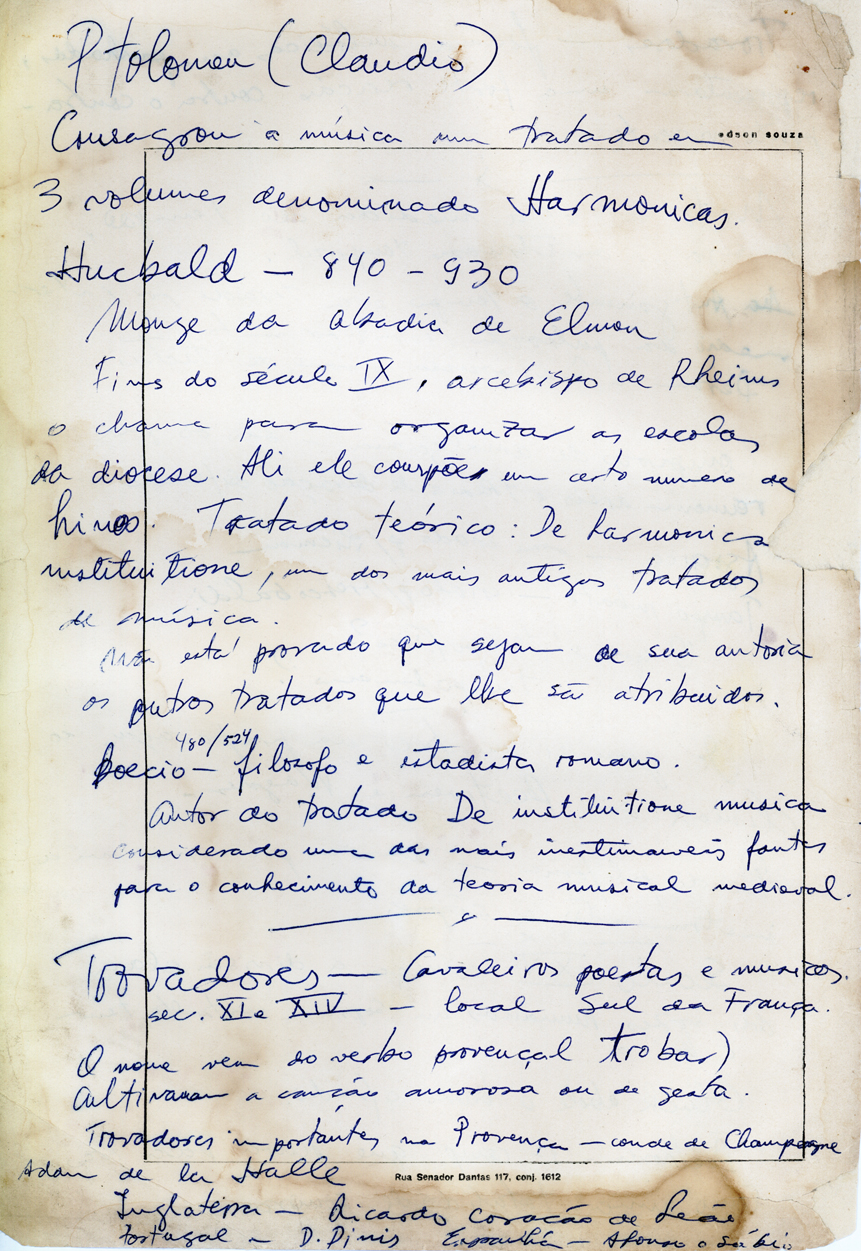 Ptolomeu (Claudio)
Consagrou à música um tratado em
edson souza
3 volumes denominado Harmonicas.
Hucbald — 840 - 930
Monge da abadia de Elmon
Fins do século IX, arcebispo de Rheims
o chama para organizar as escolas
da diocese. Ali ele compões um certo numero de
hinos. Tratado teórico: De harmonica
instituitione, um dos mais antigos tratados
de música.
Não está provado que sejam de sua autoria
os outros tratados que lhe são atribuidos.
480/524
Boecio — filosofo e estadista romano.
Autor do tratado De instituitione musica
considerado uma das mais inestimaveis fontes
para o conhecimento da teoria musical medieval.
Trovadores — Cavaleiros poetas e musicos.
sec. XI e XIV — local Sul da França.
O nome vem do verbo provençal trobar)
Cultivavam a canção amorosa ou de gesta.
Trovadores importantes na Provença — conde de Champagne
Adam de la Halle
Rua Senador Dantas 117, conj. 1612
Inglaterra — Ricardo coração de Leão
Portugal — D. Dinis Espanha — Afonso o sábio